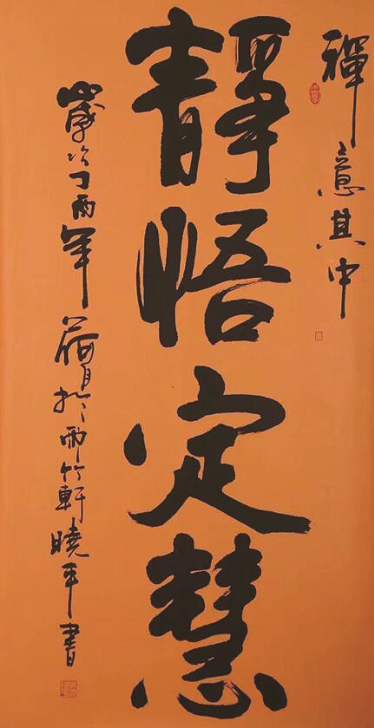 禪意其中
靜悟定慧
歲次丁酉年荷月於雨竹軒曉平書